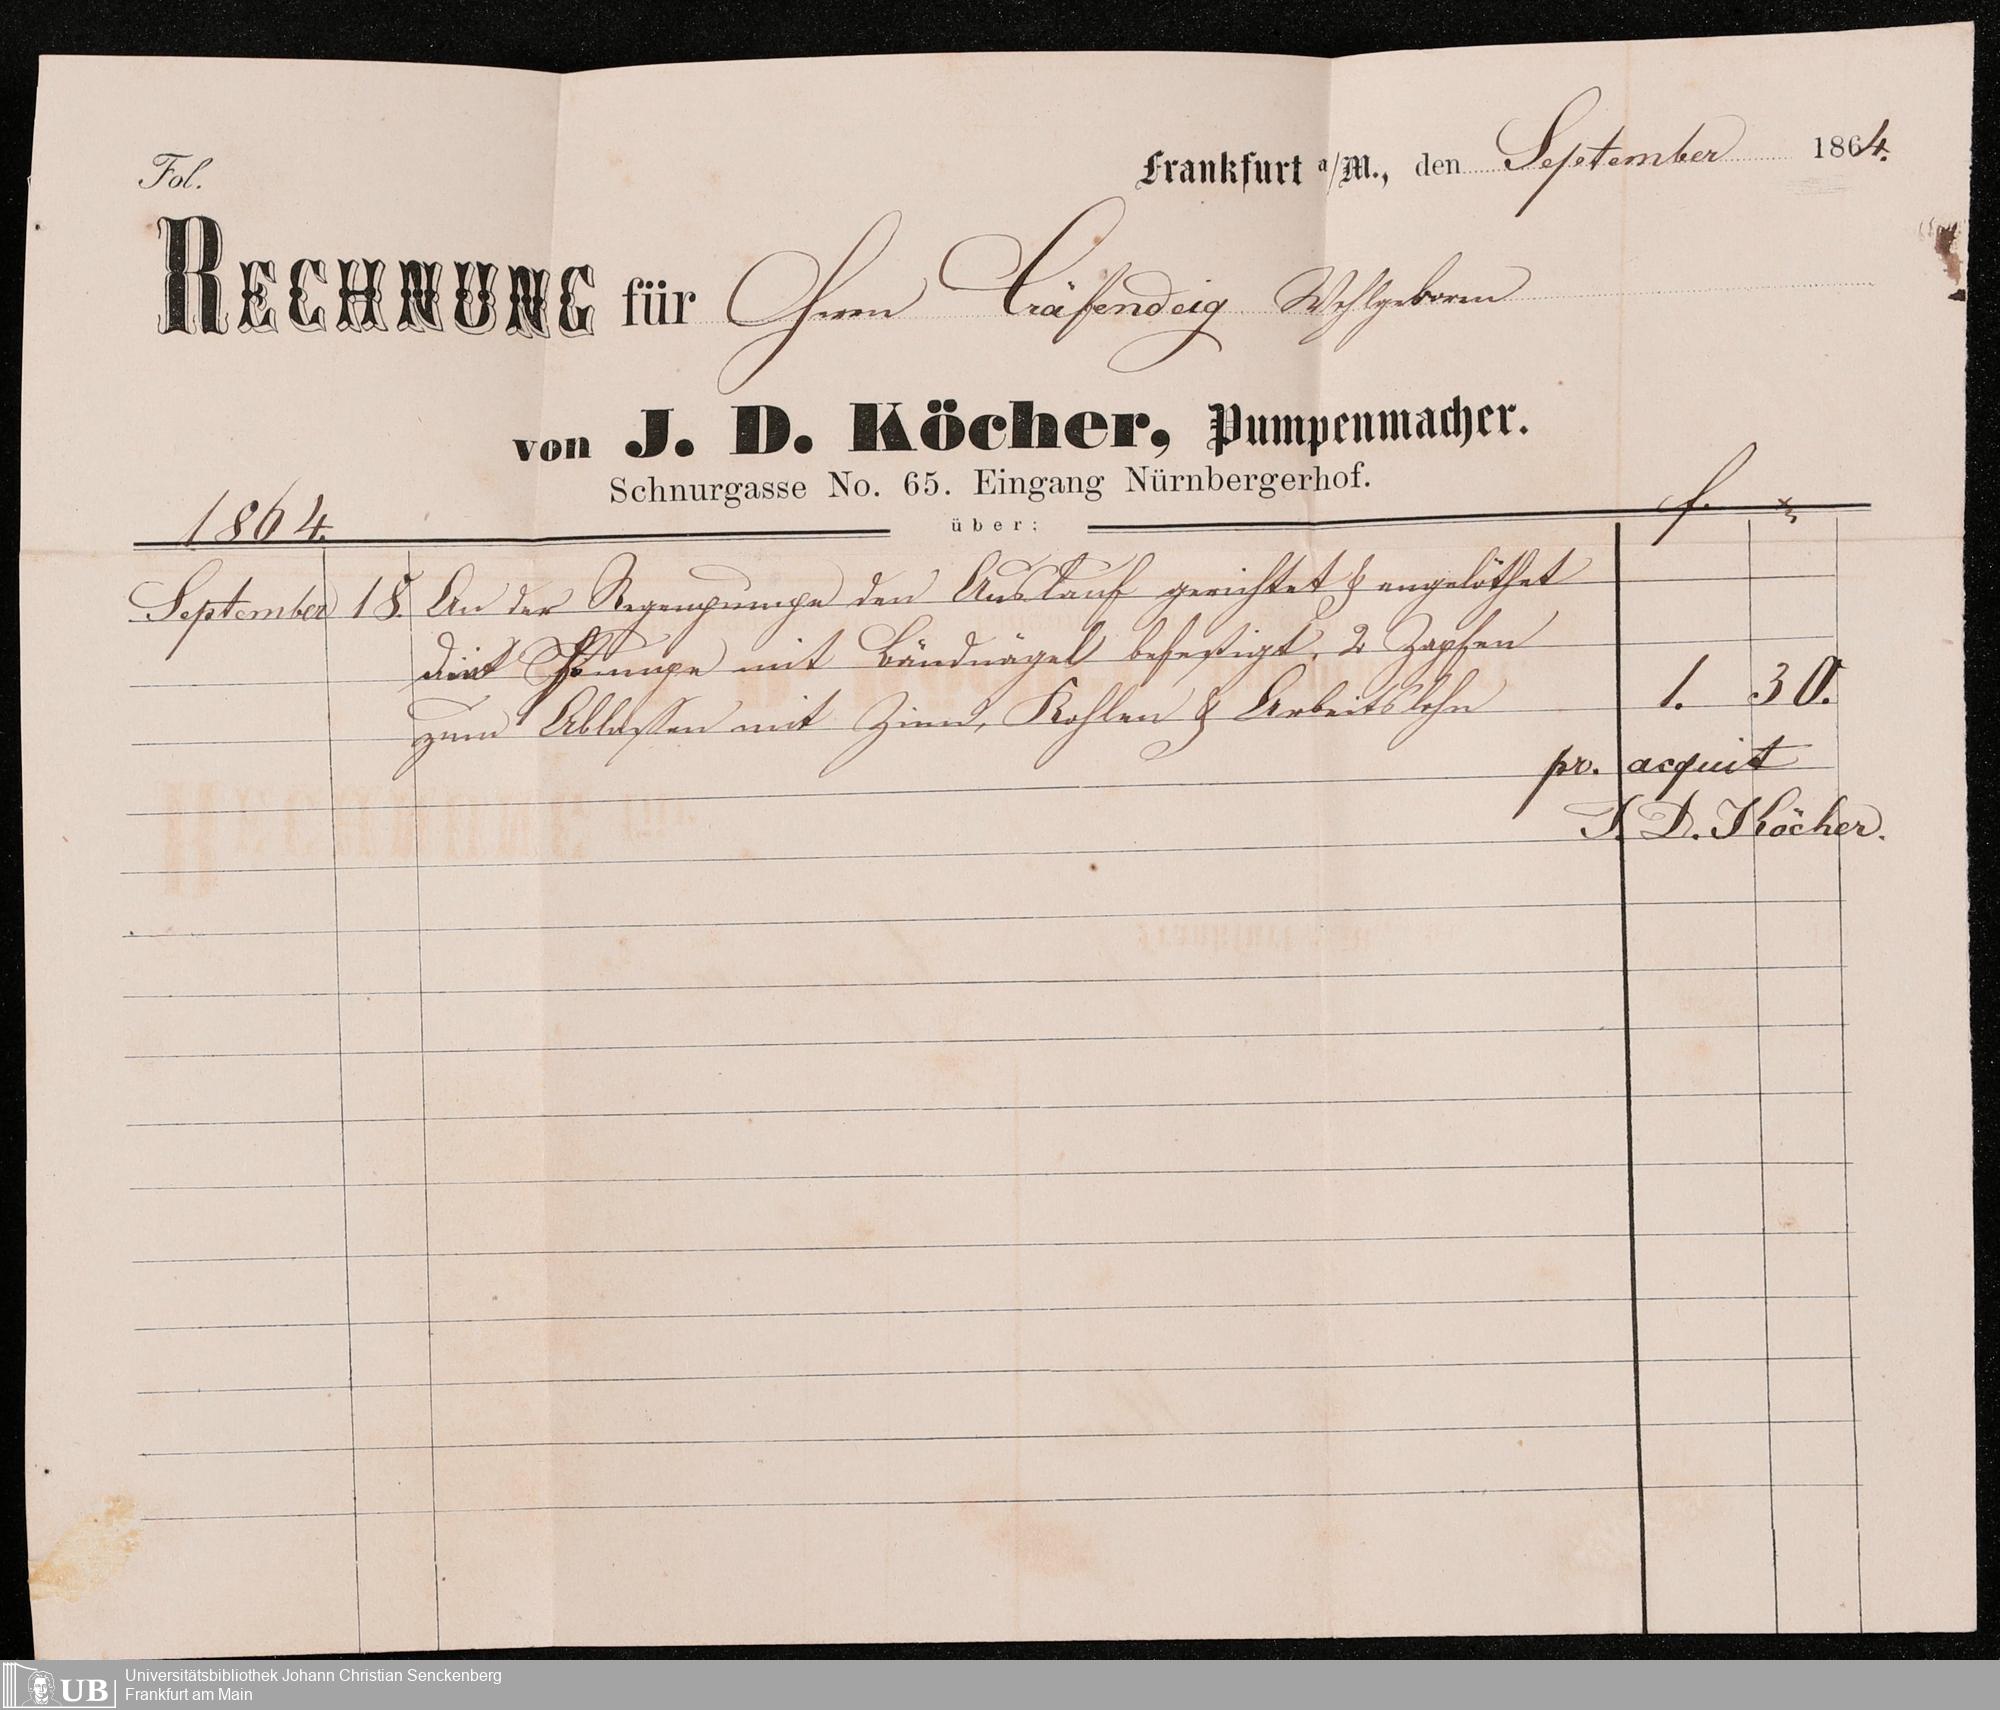 Fol.
Frankfurt a/M., den September 1864.
RECHNUNG für Herrn Gräfendeig Wohlgeboren
von J. D. Köcher, Pumpenmacher.
Schnurgasse No. 65. Eingang Nürnbergerhof.
über:
1864. f. x.
September 18. An der Regenpumpe den Auslauf gerichtet & angelöthet
Pumpe mit Bändnägel befestigt. 2 Zapfen
zum Ablassen mit Zinn, Kohlen & Arbeitslohn 1. 30.
pr. acquit
J. D. Köcher.
UB Universitätsbibliothek Johann Christian Senckenberg
Frankfurt am Main